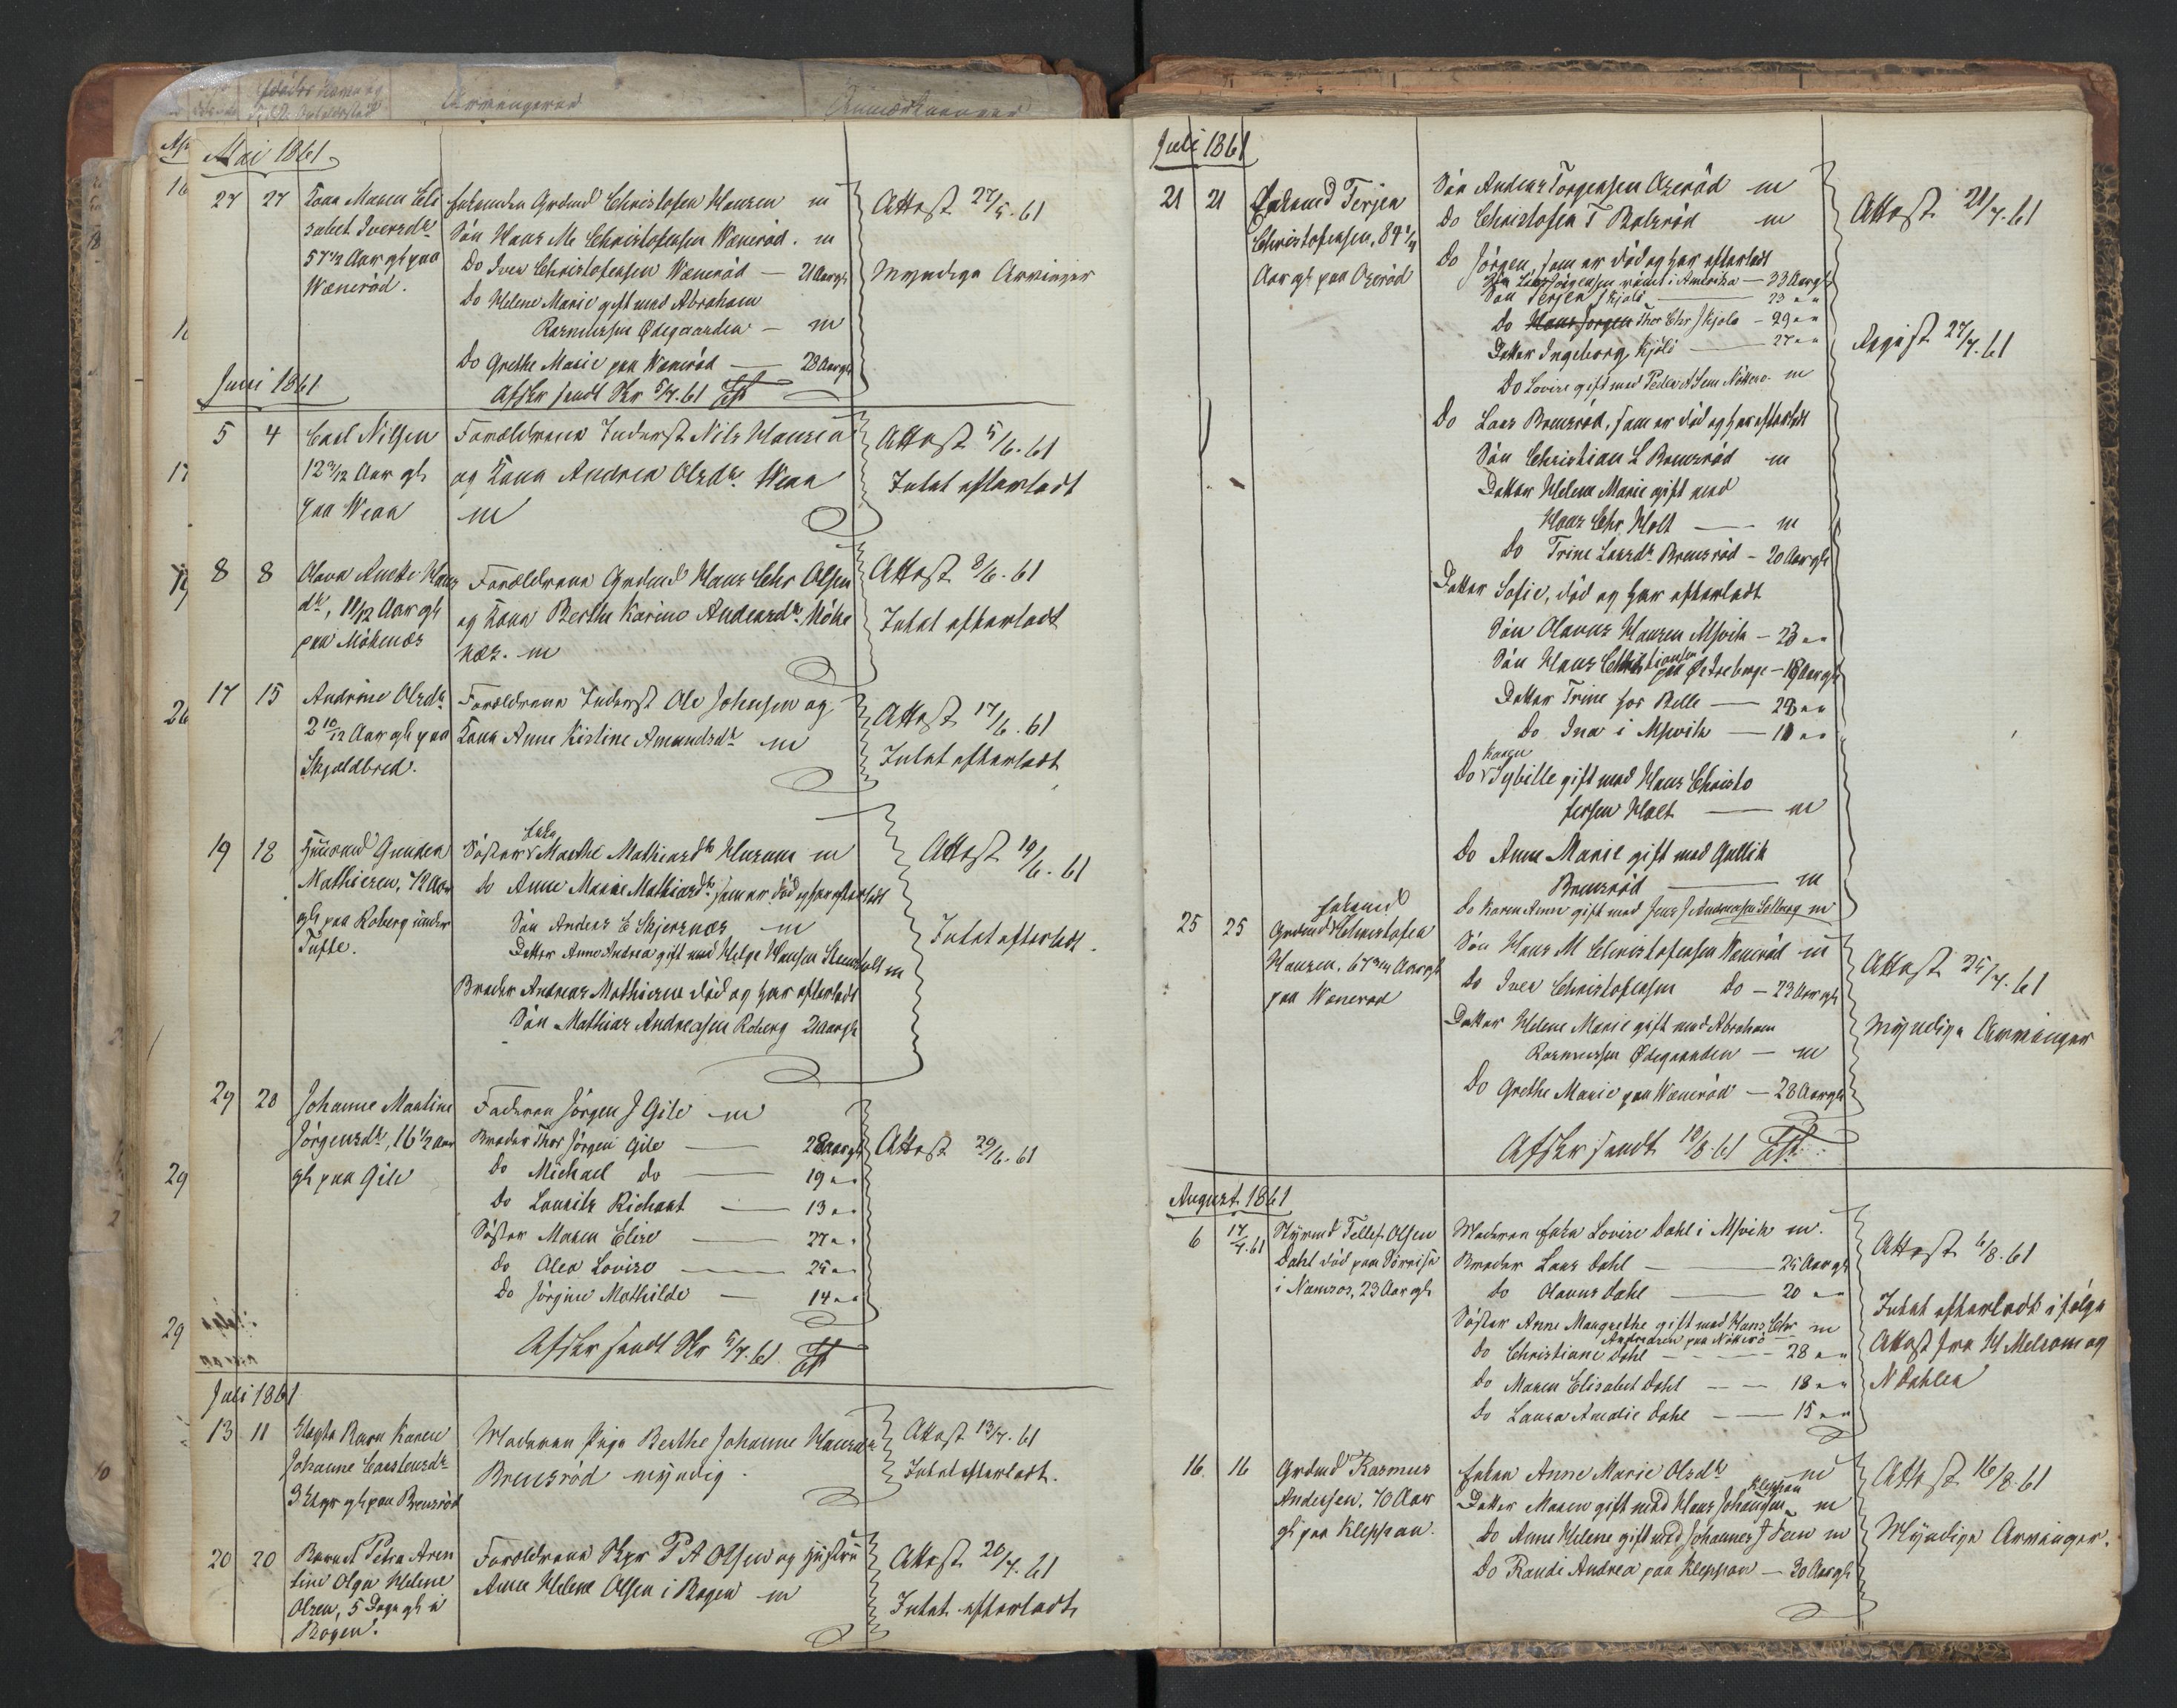 Mai 1861
27 27 Kona Maren Eli
sabet Iversdr
57 1/2 Aar gl paa
Wænerød.
Enkemden Grdmd Christofer Hansen m
Søn Hans M Christofersen Wænerød. m
Do Iver Christofersen Wænerød — 21 Aar gl
Do Helene Marie gift med Abraham
Rasmussen Ødegaarden — m
Do Grethe Marie paa Wænerød — 28 Aar gl
Afskr sendt Skr 5/7.61
Attest 27/5.61
Myndige Arvinger
Juni 1861
5 4 Carl Nilsen
12 3/12 Aar gl
paa Weaa
Forældrene Inderst Nils Hansen
og Kona Andrea Olsdr Weaa
m
Attest 5/6.61
Intet efterladt
8 8 Olava Anette Hans
dr, 11/12 Aar gl
paa Mökenæs
Forældrene Grdmd Hans Chr Olsen
og Kona Berthe Karine Andersdr Möke
næs. m
Attest 8/6.61
Intet efterladt
17 15 Andrine Olsdr
2 10/12 Aar gl paa
Skjældbred.
Forældrene Inderst Ole Johnsen og
Kona Anne Kirstine Amundsdr m
Attest 17/6.61
Intet efterladt
19 18 Huusmd Gunder
Mathisen, 72 Aar
gl paa Roberg under
Tufte.
Søster Enke Marthe Mathiasdr m
do Anne Marie Mathiasdr som er död og har efterladt
Søn Anders E Skjersnæs m
Datter Anne Andrea gift med Helge Hansen Steensholt m
Broder Andreas Mathisen död og har efterladt
Søn Mathias Andreasen Roberg 21 Aar gl
Attest 19/6.61
Intet efterladt.
29 28 Johanne Martine
Jörgensdr, 16 1/2 Aar
gl paa Gile
Faderen Jörgen J Gile m
Broder Thor Jörgen Gile — 28 Aar gl
Do Michael do — 19 " "
Do Lauritz Richart — 13 " "
Søster Maren Elise — 27 " "
Do Olea Lovise — 25 " "
Do Jörgine Mathilde — 14 " "
Afskr sendt Skr 5/7.61.
Attest 29/6.61
Juli 1861
13 11 Uægte Barn Karen
Johanne Carstensdr
3 Uger gl paa Brensrød
Moderen Pige Berthe Johanne Hansdr
Brensrød myndig.
Attest 13/7.61
Intet efterladt.
20 20 Barnet Petra Aren
tine Olga Helene
Olsen, 5 Dage gl i
Bogen.
Forældrene Skpr P A Olsen og Hustru
Anne Helene Olsen i Bogen m
Attest 20/7.61
Intet efterladt
Juli 1861
21 21 Enkemd Terjer
Christofersen, 84 1/4
Aar gl paa Ozerød
Søn Anders Torgersen Ozerød m
Do Christofer T Bolsrød m
Do Jörgen, som er död og har efterladt
Søn Lars Jörgensen rømt i Amerika — 33 Aar gl
Søn Terjer Kjølö — 23 " "
Do Thor Chr Kjølö — 29 " "
Datter Ingeborg Kjölö — 27 " "
Do Lovise gift med Peder A Sem Nötterø. m
Do Lars Brensrød, som er död og har efterladt
Søn Christian L Brensrød m
Datter Helene Marie gift med
Hans Chr Holt — m
Do Trine Larsdr Brensrød — 20 Aar gl
Datter Sofie, död og har efterladt
Søn Olavus Hansen Msvik — 23 " "
Søn Hans Christiansen paa — 18 Aar gl
Datter Trine hos Belle — 28 " "
Do Ina i Msvik — 11 " "
Do Karen Sybille gift med Hans Christo
fersen Holt — m
Do Anne Marie gift med Gullik
Brensrød — m
Do Karen Anne gift med Jens J Andreasen Solberg m
Attest 21/7.61
Regist 27/7.61
25 25 Enkemd
Grdmd Christofer
Hansen, 67 Aar gl
paa Wænerød
Søn Hans M Christofersen Wænerød m
Do Iver Christofersen do — 22 Aar gl
Datter Helene Marie gift med Abraham
Rasmussen Ødegaarden — m
Do Grethe Marie paa Wænerød — 28 Aar gl
Afskr sendt 19/8.61
Attest 25/7.61
Myndige Arvinger
August 1861
6 17/4.61 Styrmd Tellef Olsen
Dahl död paa Sørreise
i Namsos, 23 Aar gl
Moderen Enke Lovise Dahl i Msvik m.
Broder Lars Dahl — 25 Aar gl
Do Olavus Dahl — 20 " "
Søster Anne Margrethe gift med Hans Chr
Andresen paa Nötterö m
Do Christiane Dahl — 28 " "
Do Maren Elisabet Dahl — 18 " "
Do Laura Amalie Dahl — 15 " "
Attest 6/8.61
Intet efterladt ifølge
Attest fra H Melsom og
N Dahlen
16 16 Grdmd Rasmus
Andersen, 70 Aar
gl paa Kleppan.
Enken Anne Marie Olsdr m
Datter Maren gift med Hans Johansen Kleppan m
Do Anne Helene gift med Johannes J Feen m
Do Randi Andrea paa Kleppan — 30 Aar gl
Attest 16/8.61
Myndige Arvinger.